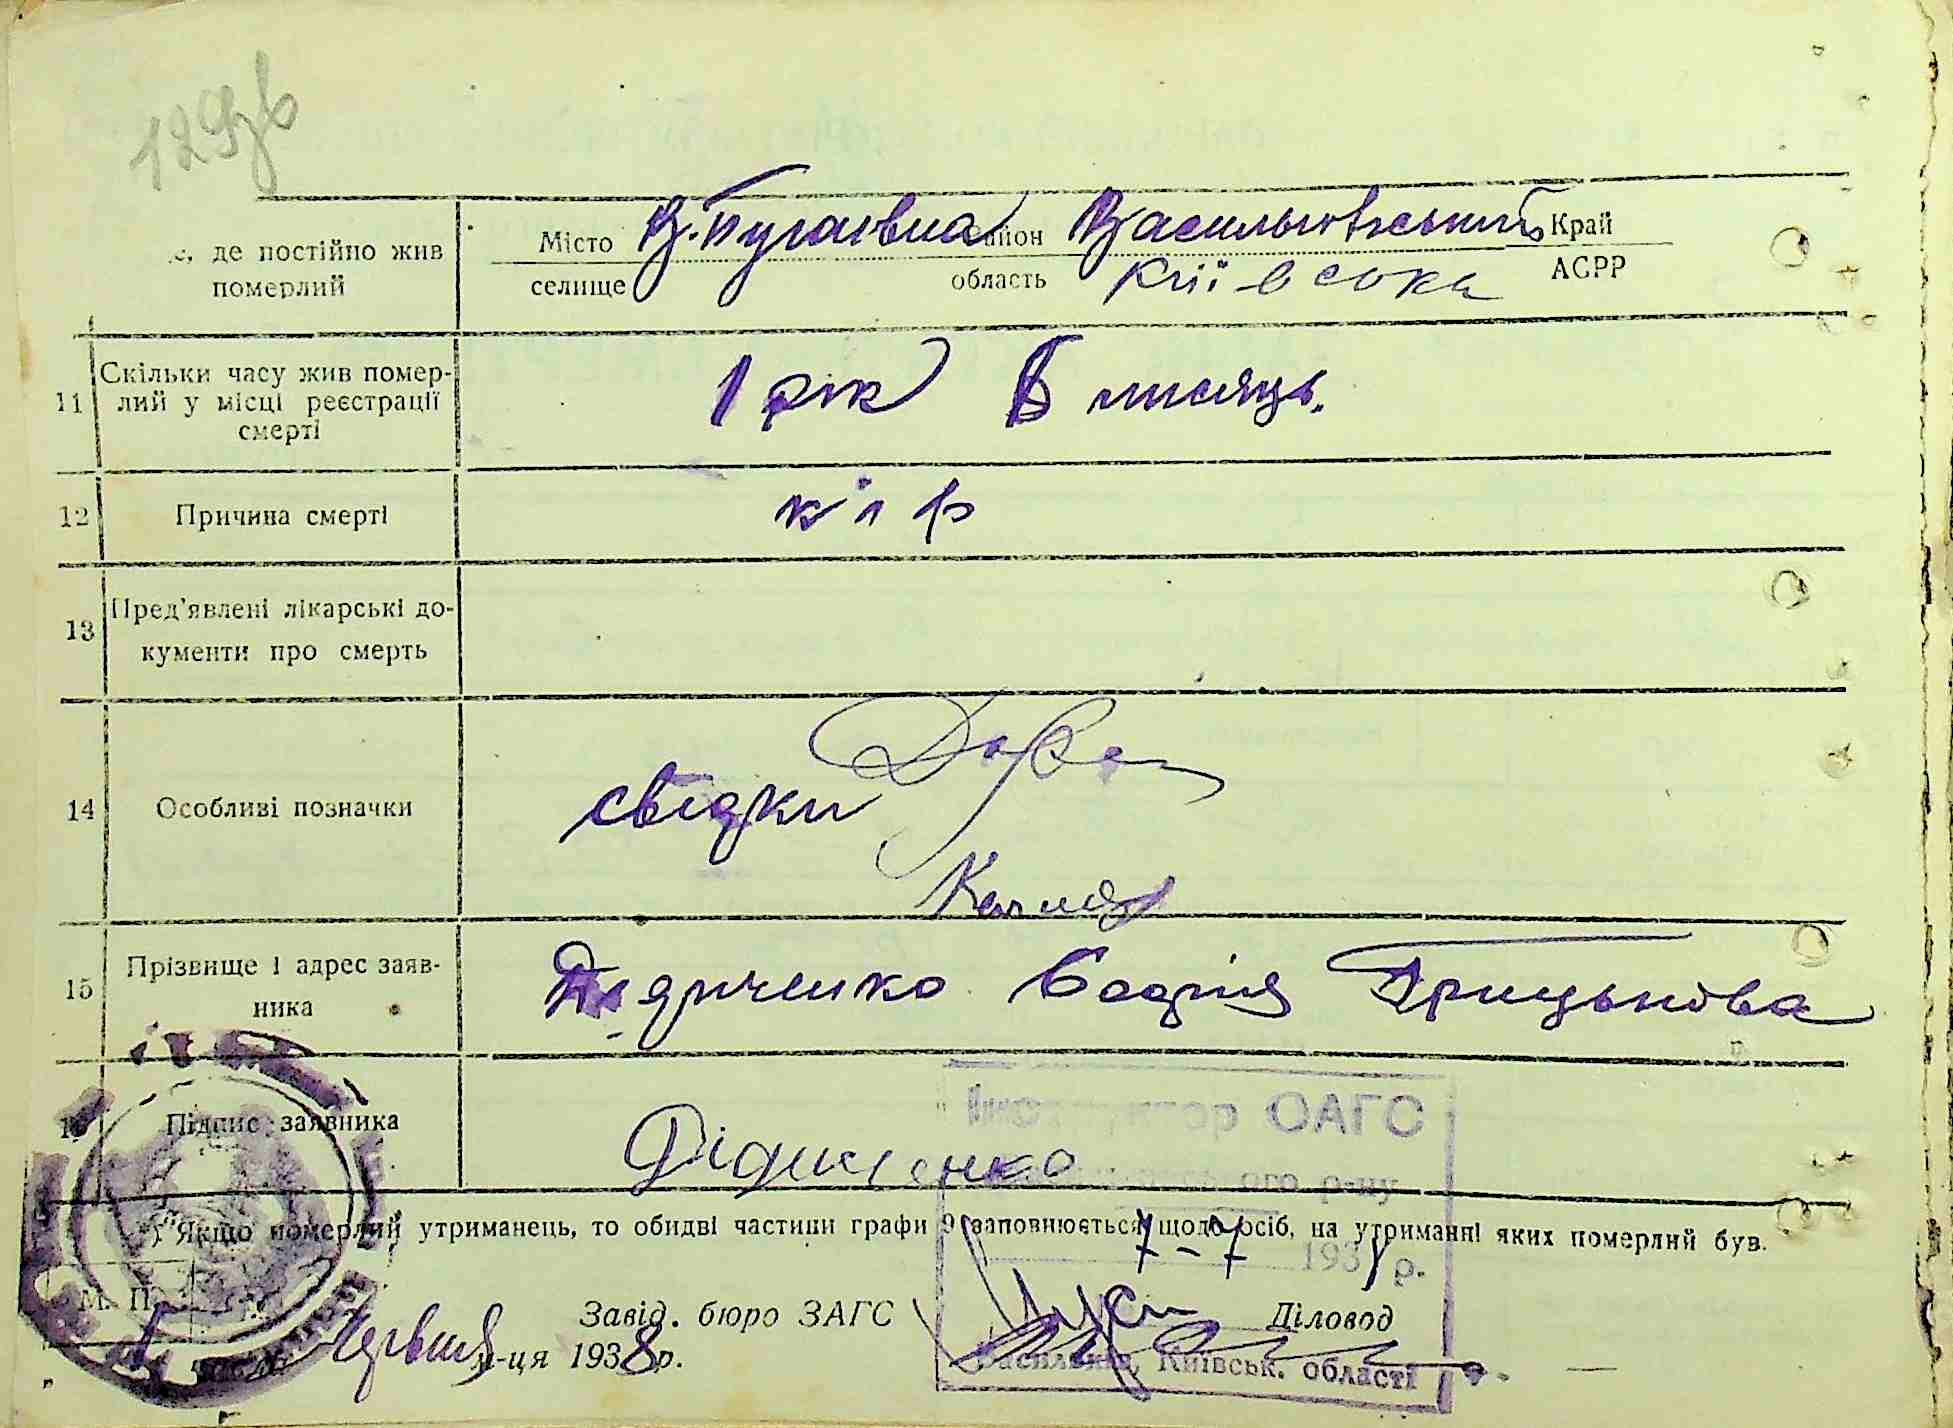 129зв
с, де постійно жив
померлий
Місто В. Бугаївка Район Васильківський Край
селище область Київська АСРР
11 Скільки часу жив помер-
лий у місці реєстрації
смерті
1 рік 6 місяць.
12 Причина смерті кір
13 Пред'явлені лікарські до-
кументи про смерть
14 Особливі позначки
свідки
15 Прізвище і адрес заяв-
ника
Дядиченко Софія Грицькова
16 Підпис заявника
Дідиченко
Інспектор ОАГС
ького р-ну
*) Якщо померлий утриманець, то обидві частини графи 9 заповнюється щодо осіб, на утриманні яких померлий був.
7-7 1938 р.
М. П.
Завід. бюро ЗАГС Діловод
числа Червня м-ця 1938 р.
Васильків, Київськ. області